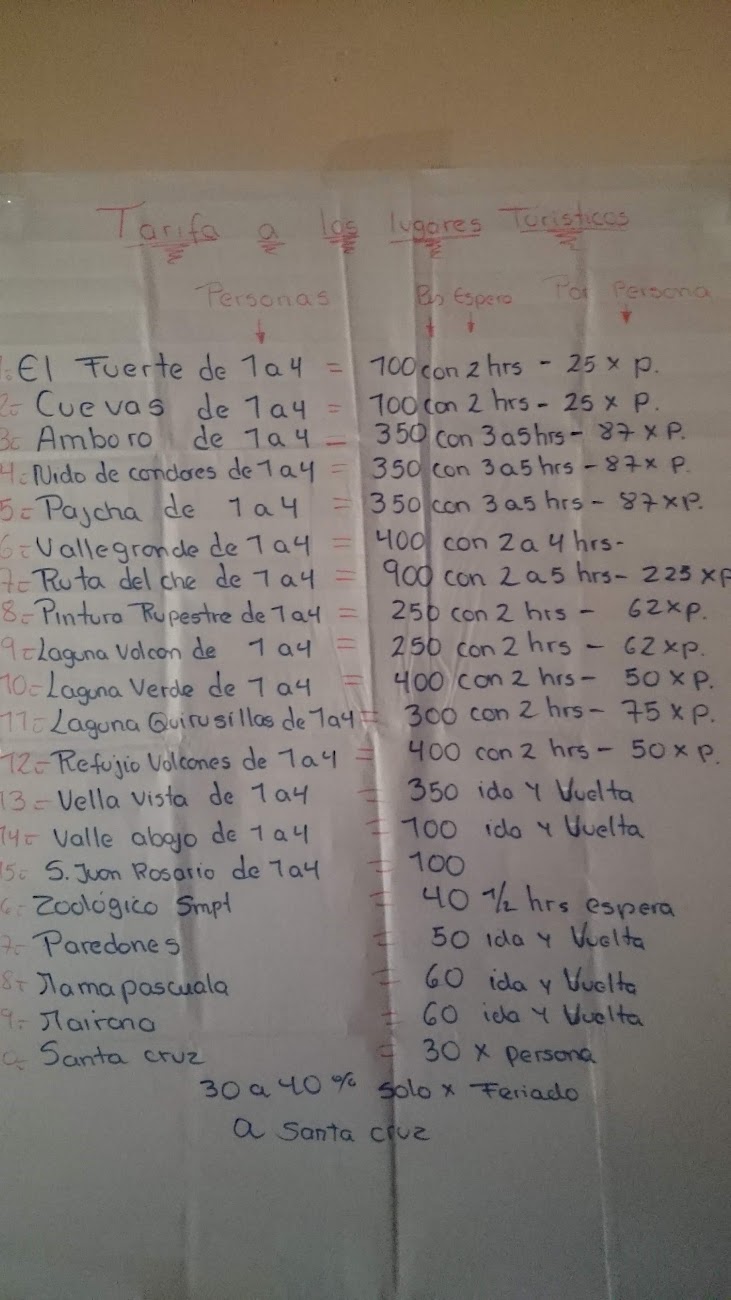 Tarifa a los lugares Turisticos
Personas Bs Espera Por Persona
1.- El Fuerte de 1 a 4 = 100 con 2 hrs - 25 x p.
2.- Cuevas de 1 a 4 = 100 con 2 hrs - 25 x P.
3.- Amboro de 1 a 4 = 350 con 3 a 5 hrs - 87 x P.
4.- Nido de condores de 1 a 4 = 350 con 3 a 5 hrs - 87 x P.
5.- Pajcha de 1 a 4 = 350 con 3 a 5 hrs - 87 x P.
6.- Vallegrande de 1 a 4 = 400 con 2 a 4 hrs-
7.- Ruta del che de 1 a 4 = 900 con 2 a 5 hrs - 225 x P
8.- Pintura Rupestre de 1 a 4 = 250 con 2 hrs - 62 x p.
9.- Laguna Volcan de 1 a 4 = 250 con 2 hrs - 62 x p.
10.- Laguna Verde de 1 a 4 = 400 con 2 hrs - 50 x p.
11.- Laguna Quirusillas de 1 a 4 = 300 con 2 hrs - 75 x p.
12.- Refujio Volcanes de 1 a 4 = 400 con 2 hrs - 50 x p.
13.- Vella Vista de 1 a 4 = 350 ida Y Vuelta
14.- Valle abajo de 1 a 4 = 100 ida Y Vuelta
5.- S. Juan Rosario de 1 a 4 = 100
6.- Zoológico Smpt = 40 1/2 hrs espera
7.- Paredones = 50 ida Y Vuelta
8.- Mama pascuala = 60 ida y Vuelta
9.- Mairana = 60 ida Y Vuelta
0.- Santa cruz = 30 x persona
30 a 40 % solo x Feriado
a Santa cruz